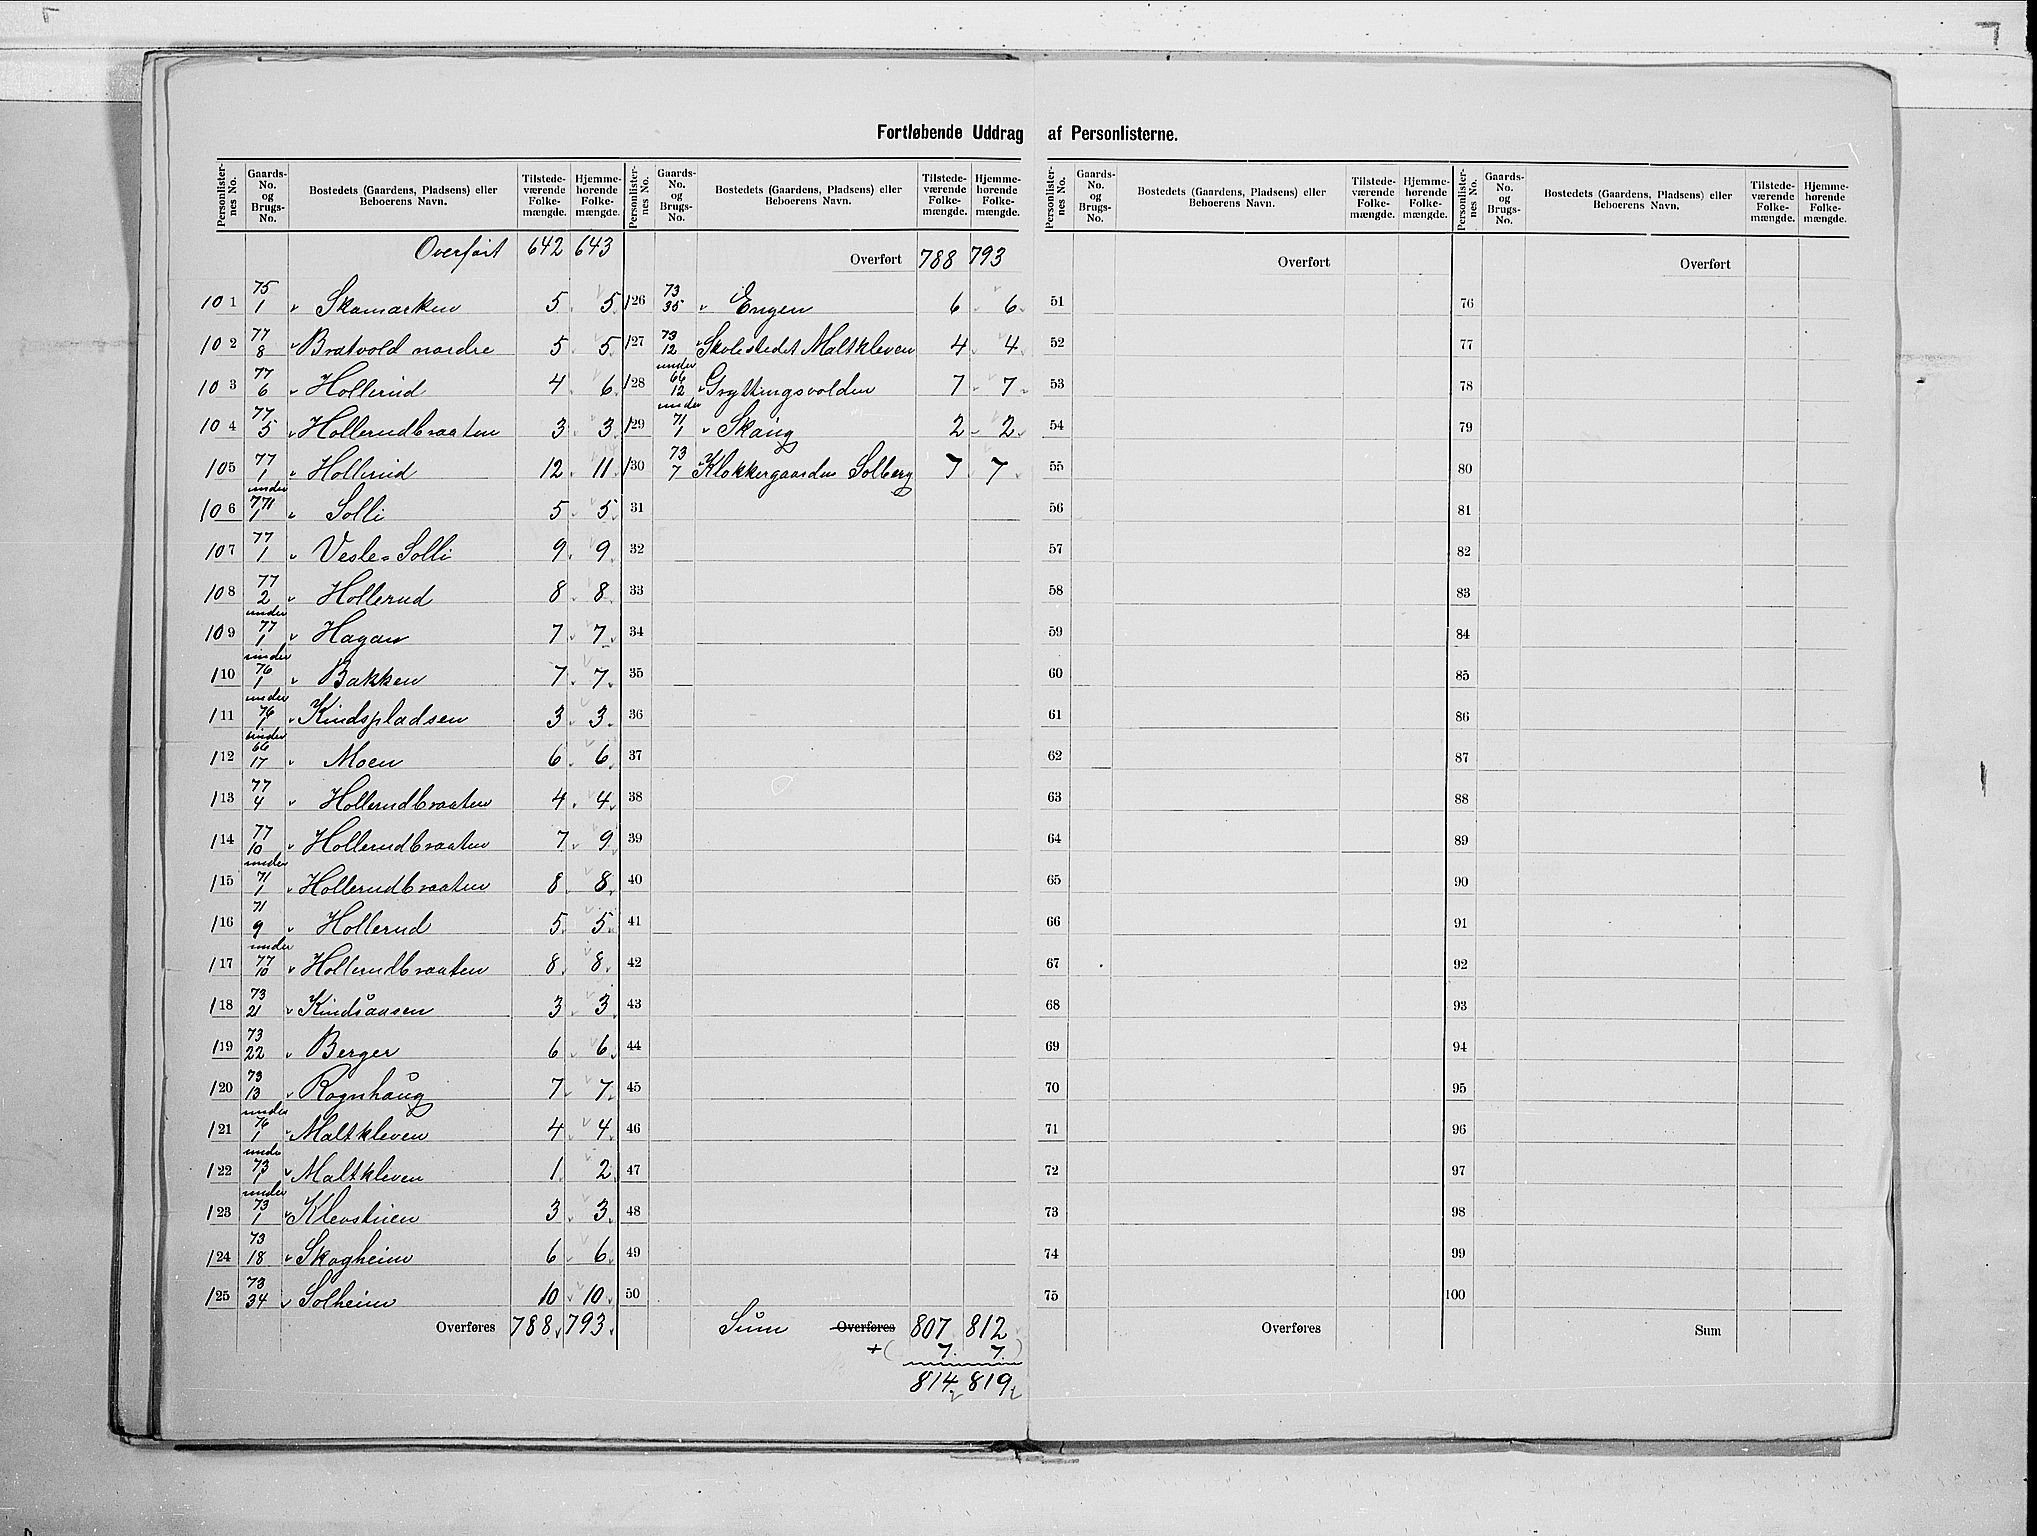 Fortløbende Uddrag af Personlisterne.
Personlister-nes No. Gaards-No. og Brugs-No. Bostedets (Gaardens, Pladsens) eller Beboerens Navn. Tilstede-værende Folke-mængde. Hjemme-hørende Folke-mængde.
Overført 642 643
101 75/1 Skamarken 5 5
102 77/8 Bratvold nordre 5 5
103 77/6 Hollerud 4 6
104 77/5 Hollerudbraaten 3 3
105 77/1 Hollerud 12 11
106 under 71/1 Solli 5 5
107 77/1 Vesle-Solli 9 9
108 77/2 Hollerud 8 8
109 under 77/1 Hagan 7 7
110 under 76/1 Bakken 7 7
111 under 76/1 Kindspladsen 3 3
112 under 66/17 Moen 6 6
113 77/4 Hollerudbraaten 4 4
114 77/10 Hollerudbraaten 7 9
115 under 71/1 Hollerudbraaten 8 8
116 71/9 Hollerud 5 5
117 under 77/10 Hollerudbraaten 8 8
118 73/21 Kindsaasen 3 3
119 73/22 Berger 6 6
120 73/13 Rognhaug 7 7
121 under 76/1 Maltkleven 4 4
122 under 73/1 Maltkleven 1 2
123 under 73/1 Klevstuen 3 3
124 73/18 Skogheim 6 6
125 73/34 Solheim 10 10
Overføres 788 793
Personlister-nes No. Gaards-No. og Brugs-No. Bostedets (Gaardens, Pladsens) eller Beboerens Navn. Tilstede-værende Folke-mængde. Hjemme-hørende Folke-mængde.
Overført 788 793
126 73/35 Engen 6 6
127 73/12 Skolestedet Maltkleven 4 4
128 under 66/12 Gryttingsvolden 7 7
129 under 71/1 Skaug 2 2
130 73/7 Klokkergaarden Solberg 7 7
31
32
33
34
35
36
37
38
39
40
41
42
43
44
45
46
47
48
49
50
Sum Overføres 807 812
+( 7. 7.)
814 819
Personlister-nes No. Gaards-No. og Brugs-No. Bostedets (Gaardens, Pladsens) eller Beboerens Navn. Tilstede-værende Folke-mængde. Hjemme-hørende Folke-mængde.
Overført
51
52
53
54
55
56
57
58
59
60
61
62
63
64
65
66
67
68
69
70
71
72
73
74
75
Overføres
Personlister-nes No. Gaards-No. og Brugs-No. Bostedets (Gaardens, Pladsens) eller Beboerens Navn. Tilstede-værende Folke-mængde. Hjemme-hørende Folke-mængde.
Overført
76
77
78
79
80
81
82
83
84
85
86
87
88
89
90
91
92
93
94
95
96
97
98
99
100
Sum